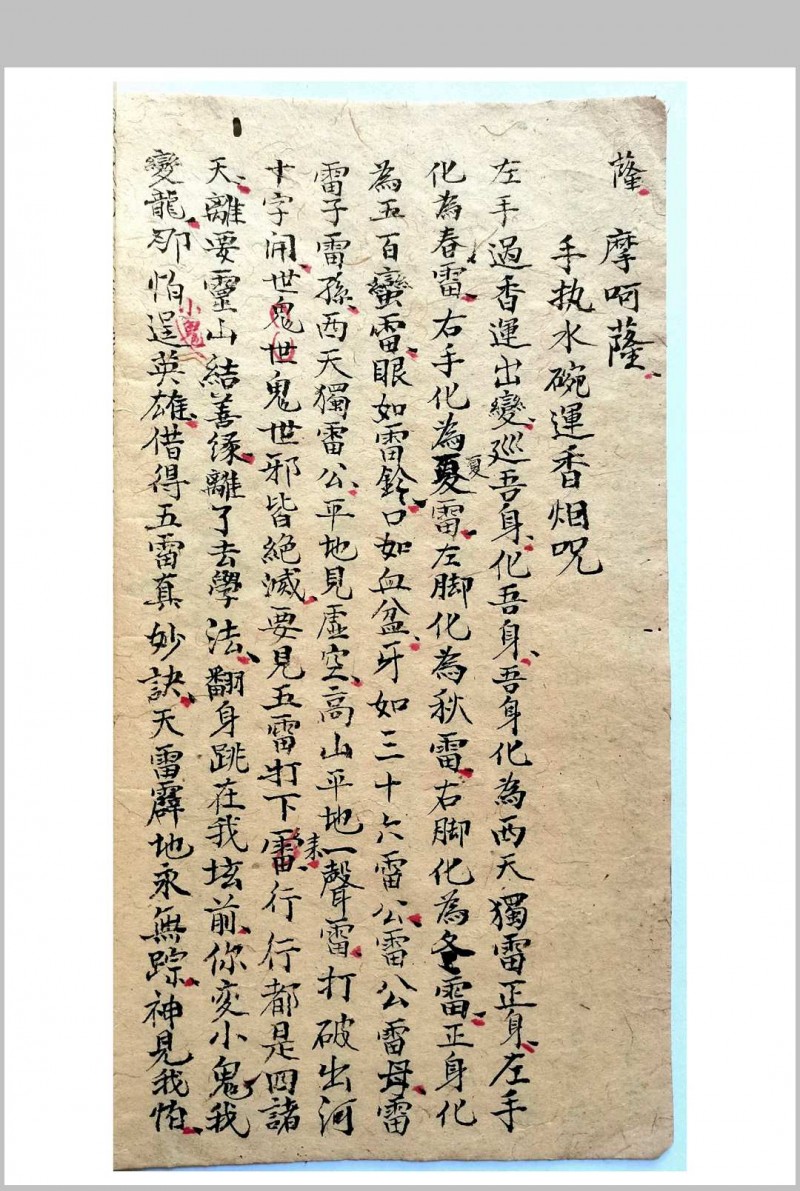 薩
摩呵薩
手执水碗運香烟咒
左手過香運出變巡吾身化吾身吾身化為西天獨雷正身左手
化為春雷右手化為夏夏雷左脚化為秋雷右脚化為冬雷正身化
為五百蠻雷眼如雷鈴口如血盆牙如三十六雷公雷公雷母雷
雷子雷孫西天獨雷公平地見虛空高山平地一聲雷打破出河
十字開世鬼世鬼世邪皆絕滅要見五雷打下來行行都是四諸
天離要靈山結善緣離了去學法翻身跳在我坛前你变小鬼我
變龍那怕小鬼逞英雄借得五雷真妙訣天雷霹地永無踪神見我怕